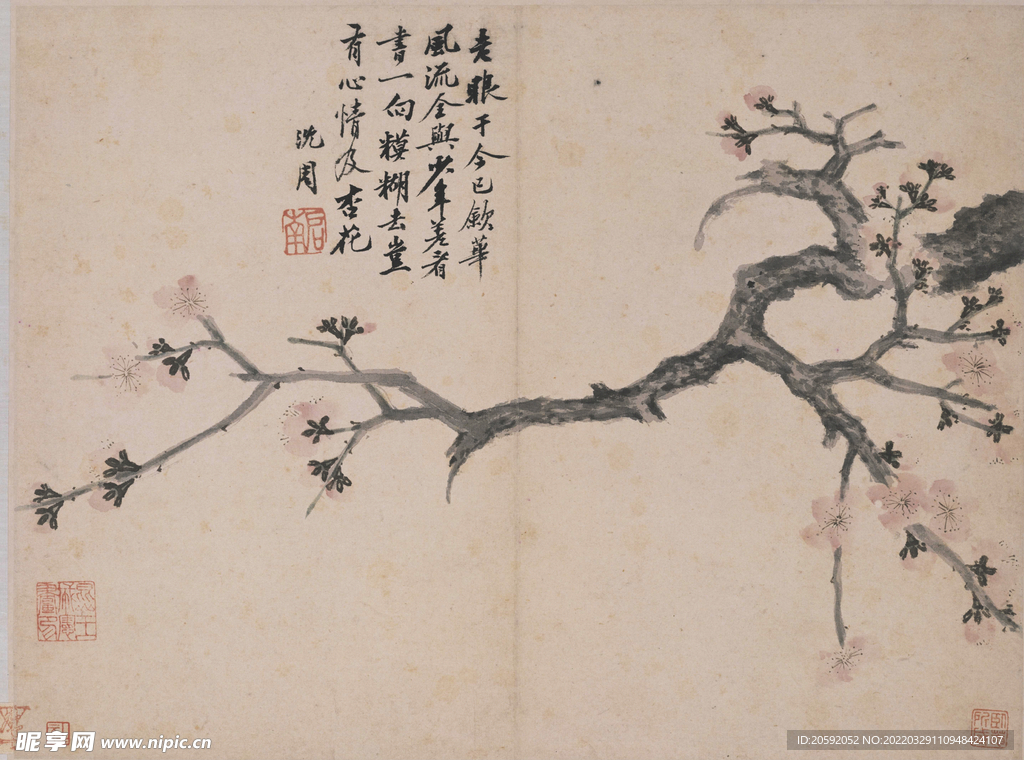 老眼于今已歛華
風流全與少年差看
書一向糢糊去豈
有心情及杏花
沈周
启南
昵享网 www.nipic.cn
ID:20592052 NO:20220329110948424107